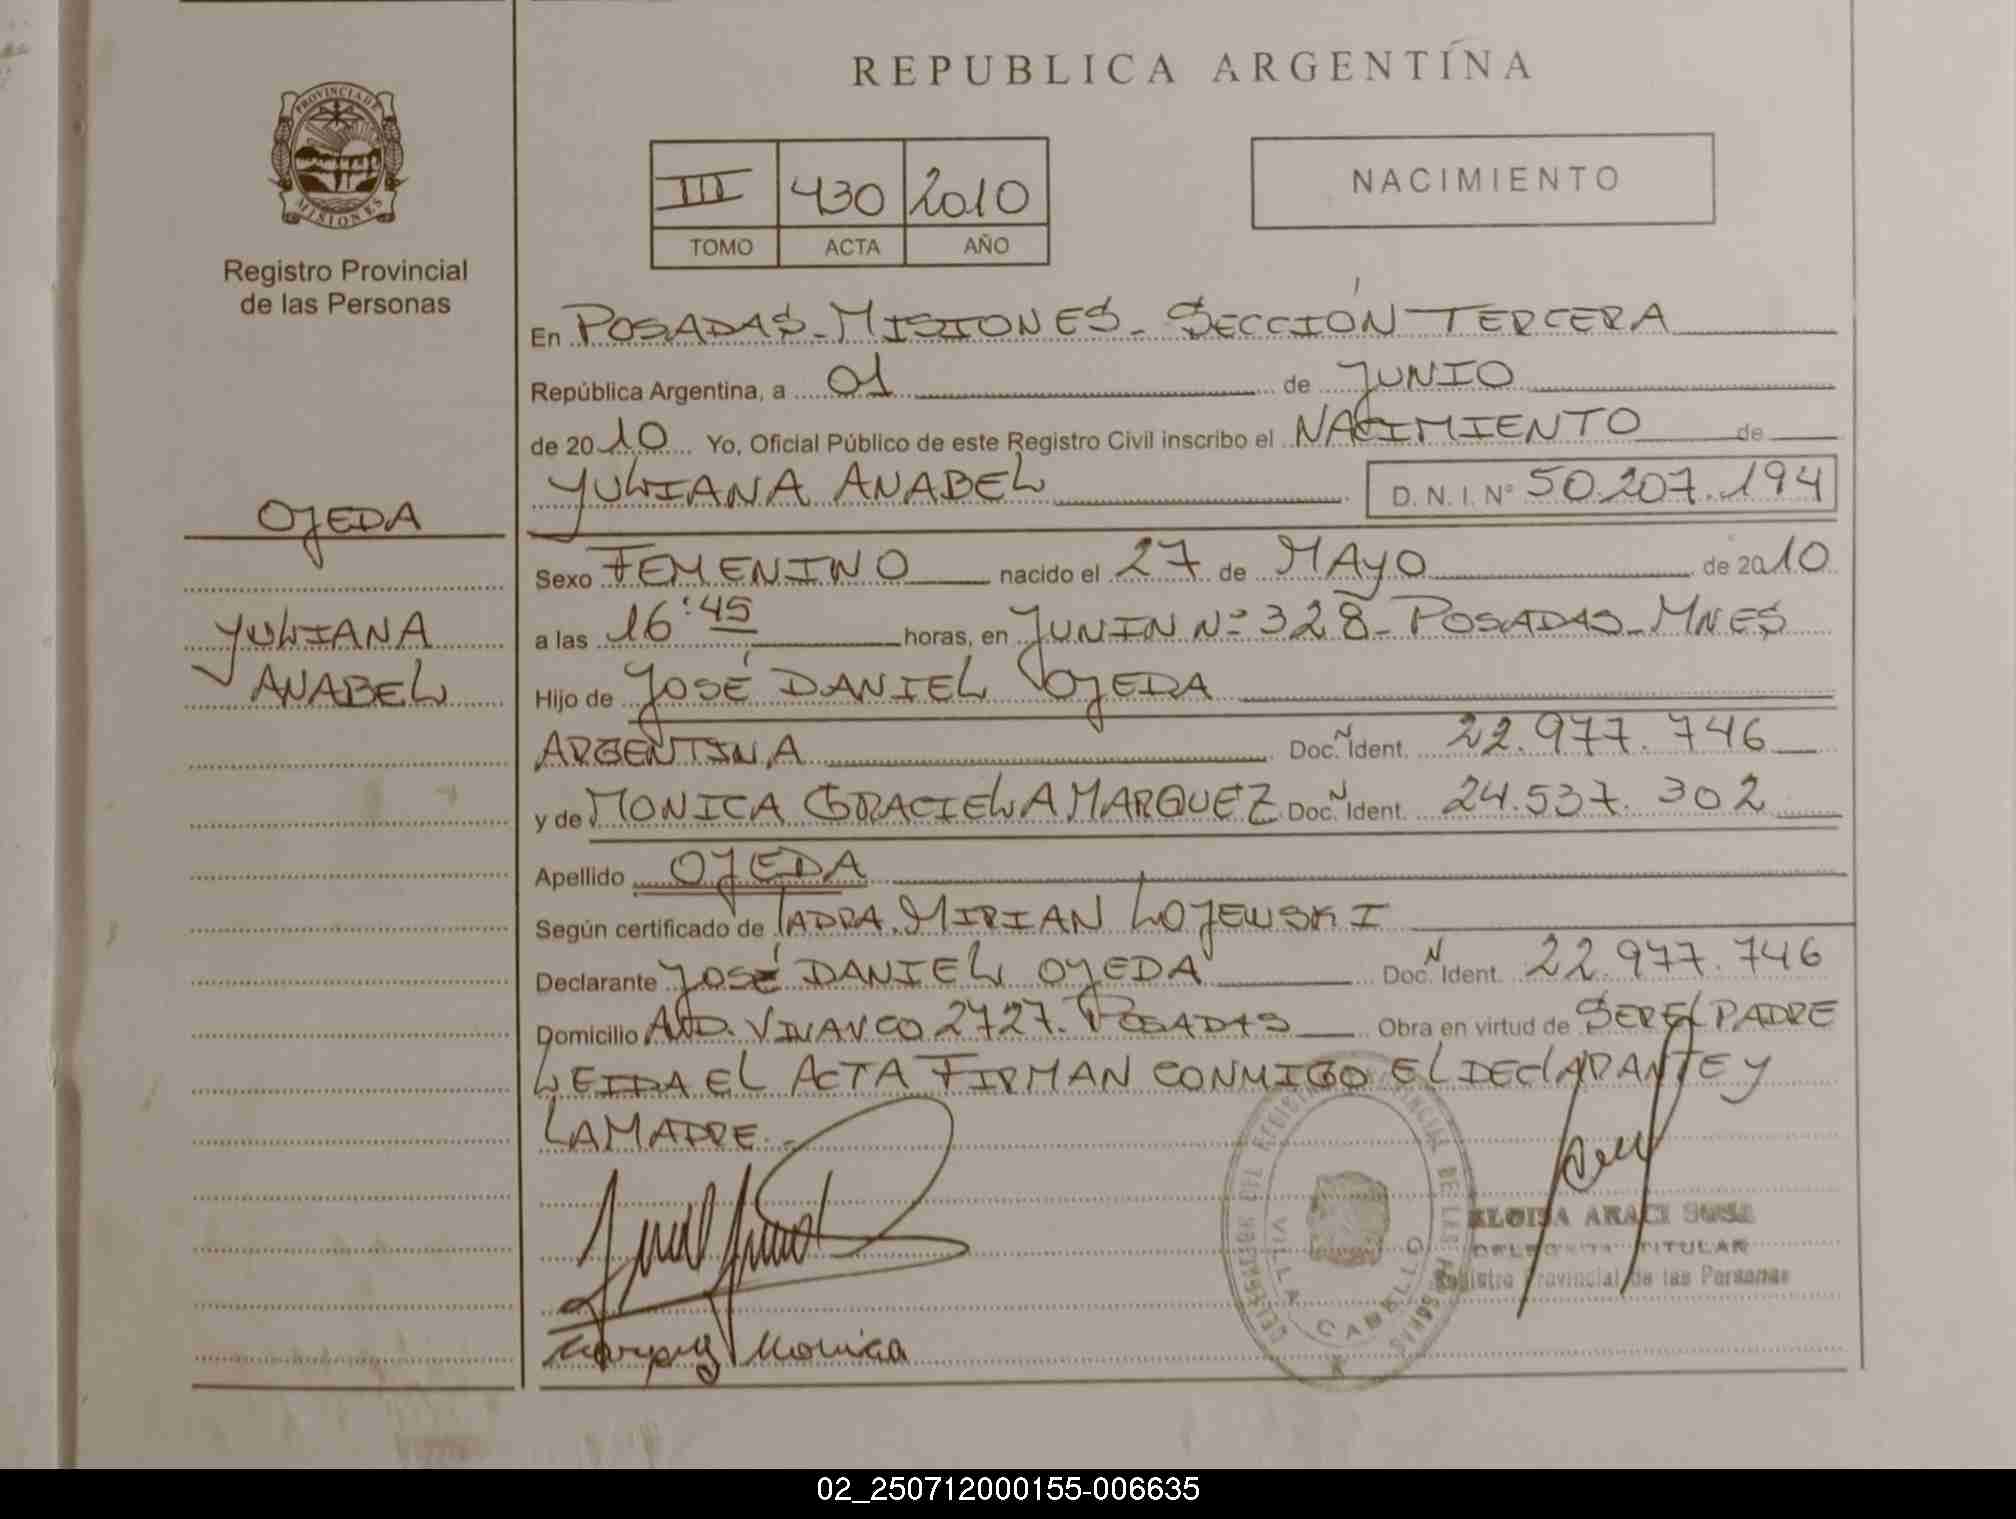 REPUBLICA ARGENTINA
PROVINCIA DE
MISIONES
Registro Provincial
de las Personas
III 430 2010
TOMO ACTA AÑO
NACIMIENTO
En POSADAS-MISIONES- SECCIÓN TERCERA
República Argentina, a 01 de JUNIO
de 2010 Yo, Oficial Público de este Registro Civil inscribo el NACIMIENTO de
YULIANA ANABEL D. N. I. Nº 50.207.194
OJEDA
YULIANA
ANABEL
Sexo FEMENINO nacido el 27 de MAYO de 2010
a las 16:45 horas, en JUNIN Nº 328- POSADAS-MNES
Hijo de JOSÉ DANIEL OJEDA
ARGENTINA Doc. N Ident. 22.977.746
y de MONICA GRACIELA MARQUEZ Doc. N Ident. 24.537.302
Apellido OJEDA
Según certificado de MIRIAN LOJEWSKI
Declarante JOSÉ DANIEL OJEDA Doc. N Ident. 22.977.746
Domicilio 2727. POSADAS Obra en virtud de SER EL PADRE
LEIDA EL ACTA FIRMAN CONMIGO EL DECLARANTE Y
LA MADRE.-
Monica
VILLA CABELLO
ELOISA ARACI
TITULAR
Registro Provincial de las Personas
02_250712000155-006635